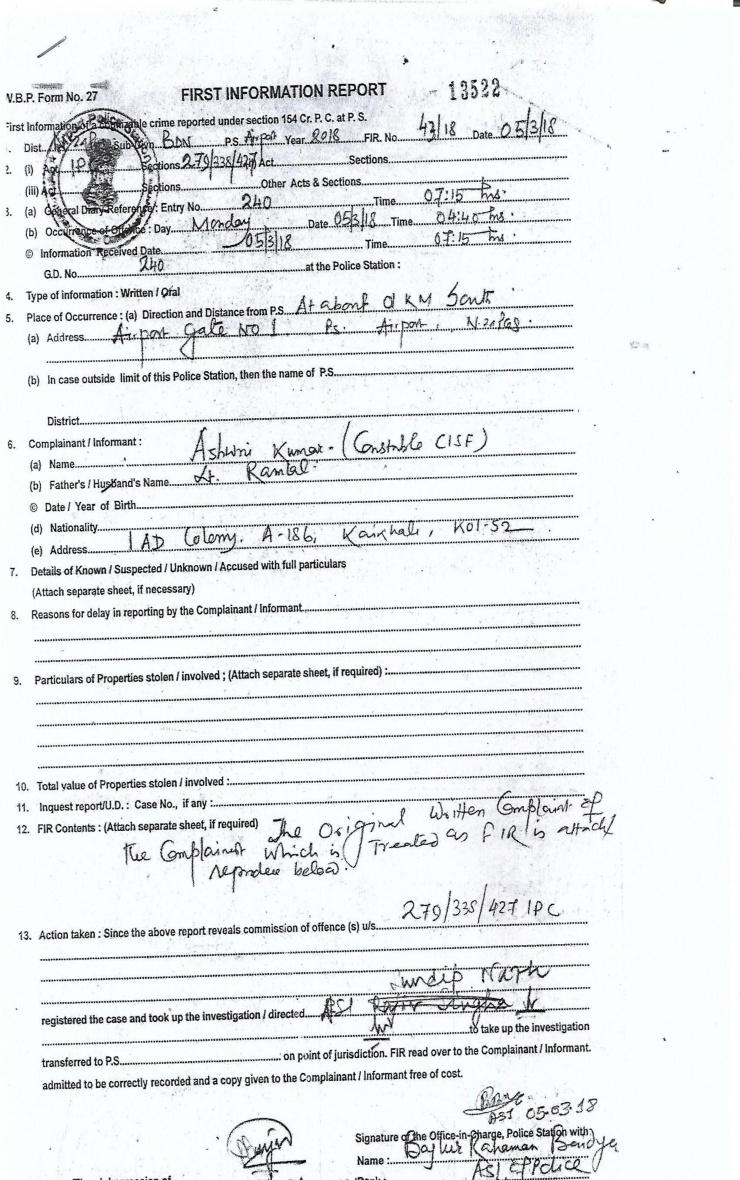 V.B.P. Form No. 27
FIRST INFORMATION REPORT
13522
First Information of a cognizable crime reported under section 154 Cr. P. C. at P. S.
Dist. Sub-Dvn. BDN P.S. Airport Year 2018 FIR. No. 43/18 Date 05/3/18
2. (i) Act IPC Sections 279/338/427 Act Sections
(iii) Act Sections Other Acts & Sections
3. (a) General Diary Reference: Entry No. 240 Time 07:15 hrs.
(b) Occurrence of Offence : Day Monday Date 05/3/18 Time 04:40 hrs.
© Information Received Date 05/3/18 Time 07:15 hrs.
G.D. No. 240 at the Police Station :
4. Type of information : Written / Oral
5. Place of Occurrence : (a) Direction and Distance from P.S. At about KM South
(a) Address Airport Gate No 1 Ps. Airport, N. 24 Pgs.
(b) In case outside limit of this Police Station, then the name of P.S.
District
6. Complainant / Informant :
(a) Name Ashwni Kumar - (Constable CISF)
(b) Father's / Husband's Name Lt. Ramlal.
© Date / Year of Birth
(d) Nationality
(e) Address IAD Colony. A-186, Kaikhali, Kol-52
7. Details of Known / Suspected / Unknown / Accused with full particulars
(Attach separate sheet, if necessary)
8. Reasons for delay in reporting by the Complainant / Informant
9. Particulars of Properties stolen / involved ; (Attach separate sheet, if required) :
10. Total value of Properties stolen / involved :
11. Inquest report/U.D. : Case No., if any :
12. FIR Contents : (Attach separate sheet, if required) The Original Written Complaint of
the Complainant which is Treated as FIR is attach/
below.
13. Action taken : Since the above report reveals commission of offence (s) u/s. 279/338/427 IPC
Sundip Nath
registered the case and took up the investigation / directed ASI
to take up the investigation
transferred to P.S. on point of jurisdiction. FIR read over to the Complainant / Informant.
admitted to be correctly recorded and a copy given to the Complainant / Informant free of cost.
ASI 05-03-18
Signature of the Office-in-Charge, Police Station with
Name : Rahaman
ASI of Police